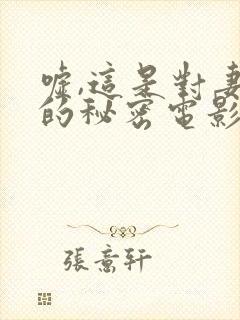 嘘,這是對妻
的秘密電影
張意軒